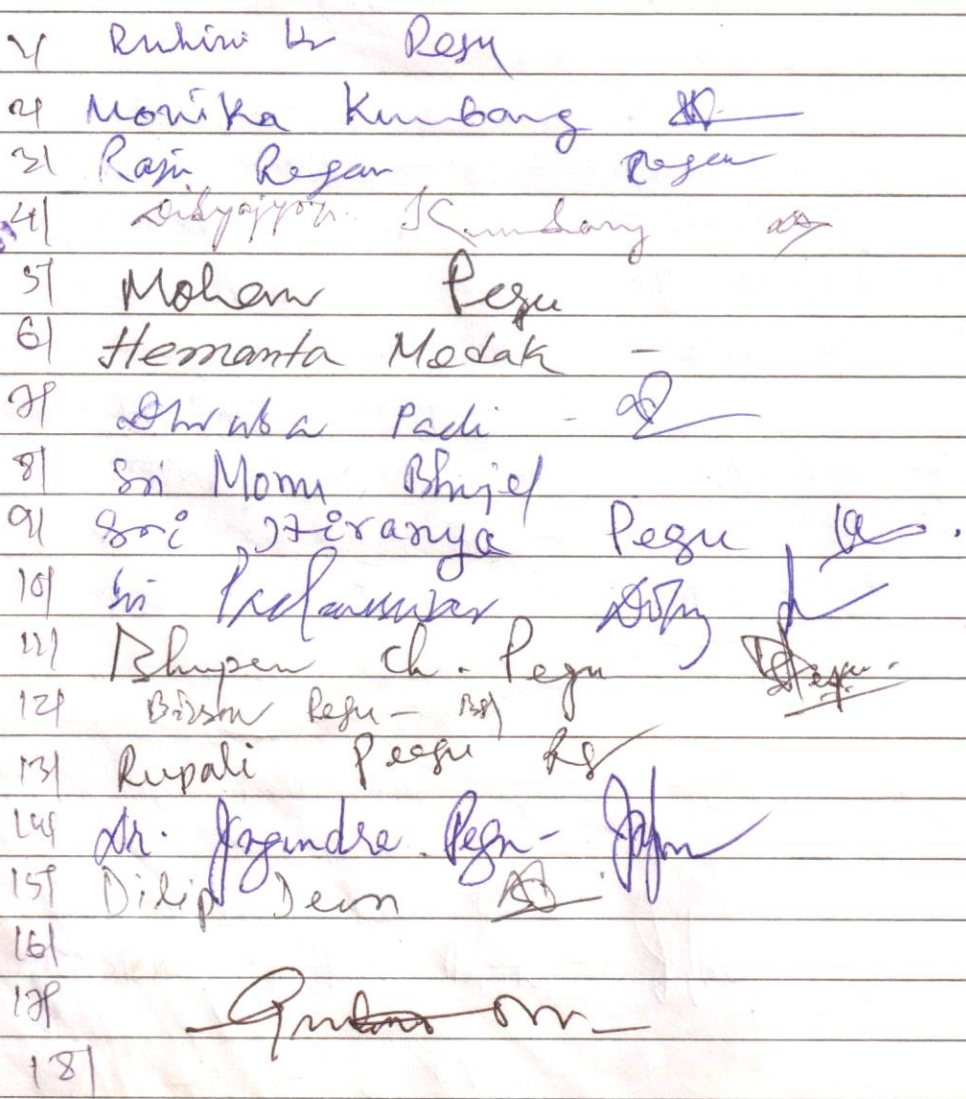 1) Ruhini Kr Pegu
2) Monika Kumbang
3) Raju Regan Regan
4) Dibyajyoti Kumbang
5) Mohan Pegu
6) Hemanta Modak -
7) Dhruba Padi -
8) Sri Momu Bhujel
9) Sri Hiranya Pegu
10) Sri Doley
11) Bhupen Ch. Pegu
12) Pegu -
13) Rupali Peegu
14) Dr. Jogendra Pegu -
15) Dilip Deori
16)
17)
18)